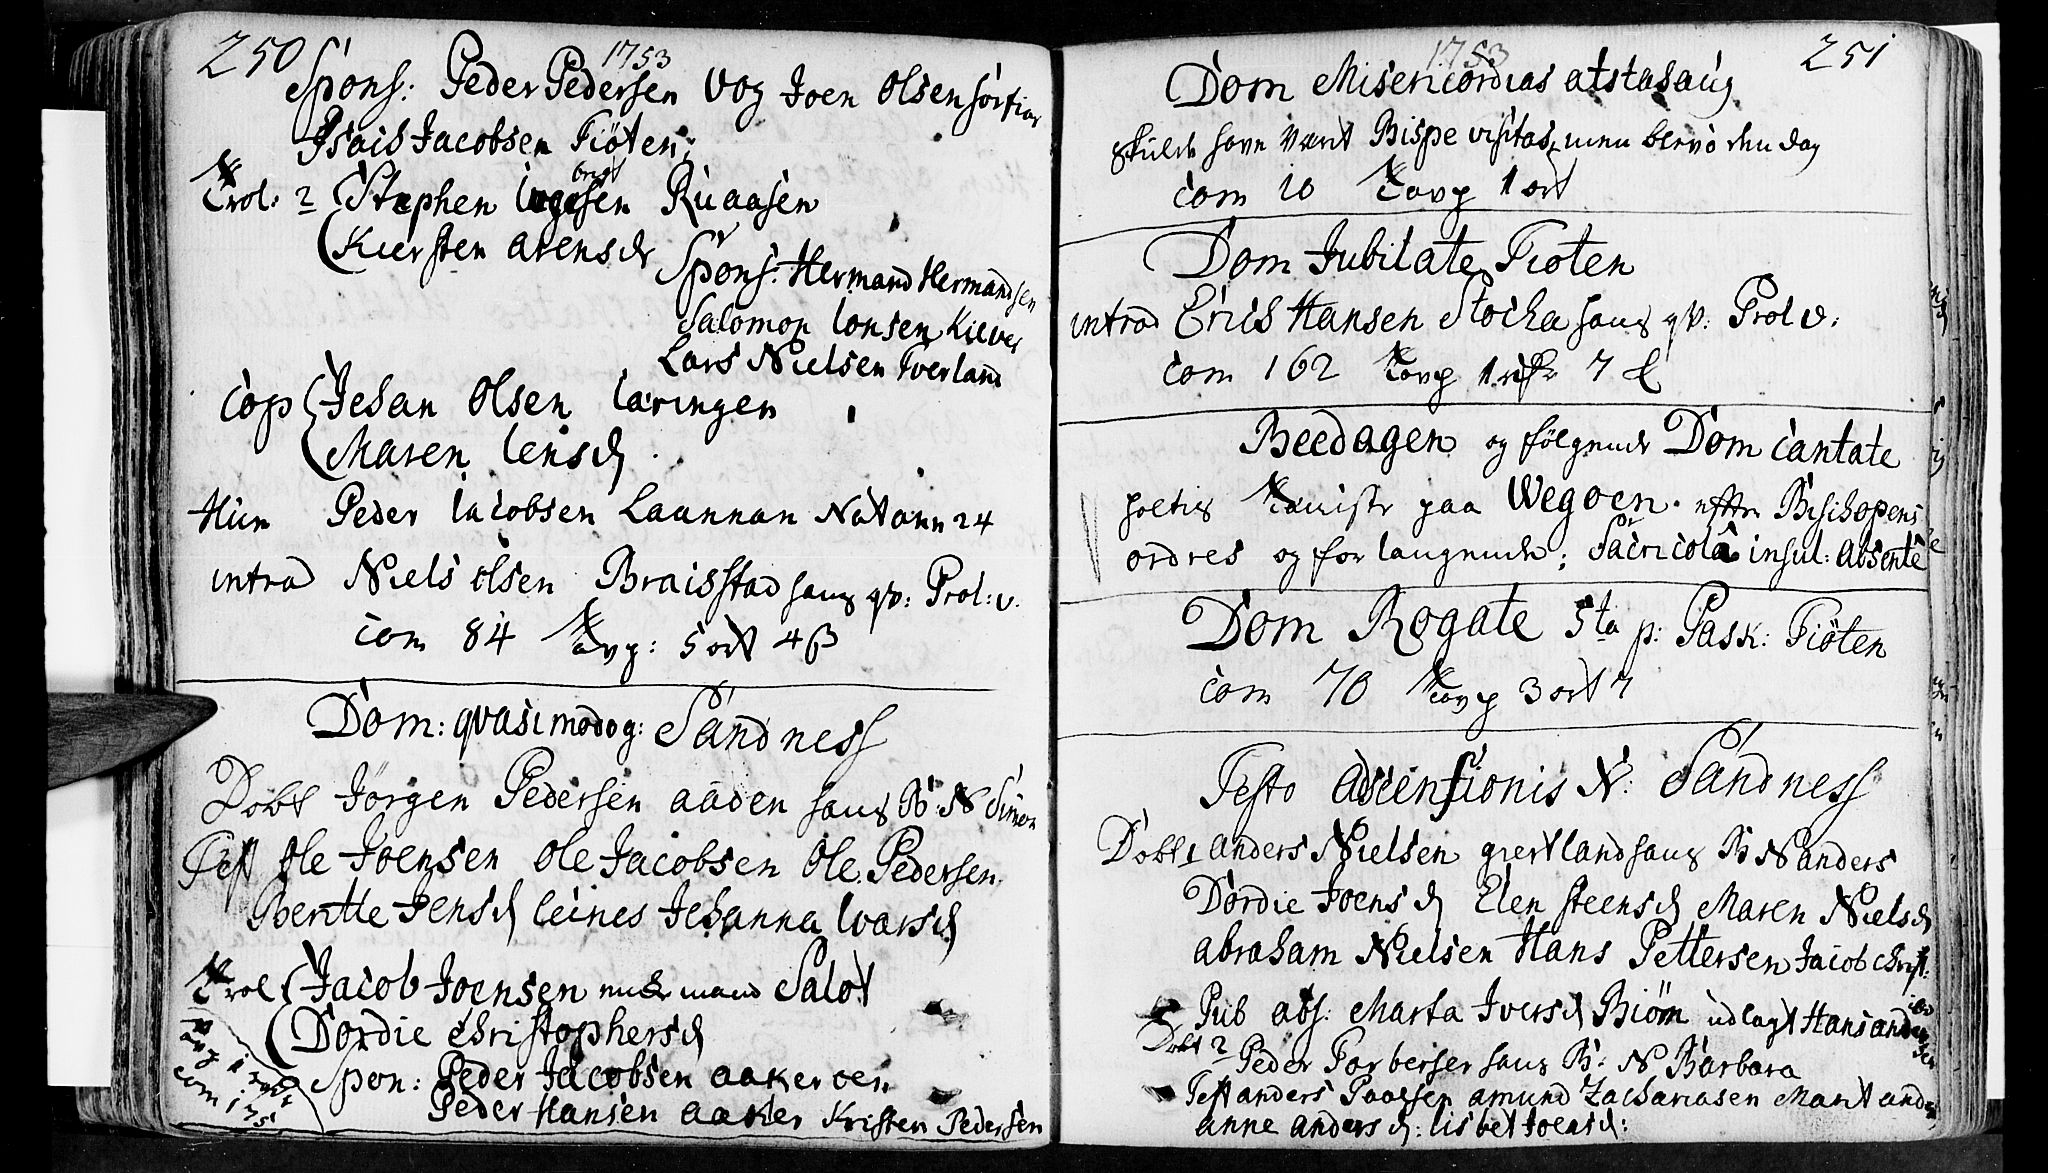 250
1753
Spons: Peder Pedersen vog Joen Olsen
Isais Jacobsen Fiöten
Trol: 2 Stephen Ruaasen
Kiersten arensd
Spons: Hermand Hermandsen
Salomon Ionsen
Lars Nielsen Tverland
Cop Johan Olsen
Maren Iensd
Hiem Peder Iacobsen Laannan Nat ann 24
introd Niels olsen Braisstad hans qv: Prol: v.
com 84 Tavg: 5 ort 4 β
Dom: qvasimodog: Sandness
Döbt Jörgen Pedersen aaden hans B N Simon
Test Ole Joensen Ole Jacobsen Ole Pedersen
Bentte Jensd Leines Johanna Ivarsd
Trol Jacob Joensen Salot
Dordie Christophersd
Spon: Peder Jacobsen aakeroen
Peder Hansen aaker Kristen Pedersen
com 175
251
1753
Dom Misericordias
skulde have vært Bispe visitas, men blev ö den dag
com 10 Tavg 1 ort
Dom Jubilate Fiöten
introd Erics Hansen Stocka hans qv: Prol v:
com 162 Tavg 7
Beedagen og fölgende Dom Cantate
holtes paa Wegoen efter Bischopens
ordres og forlangende; Sacricola insul: absente
Dom Rogate 5ta p: Pask: Fiöten
com 70 Tavg 3 ort 7
Festo adscensionis N: Sandness
Döbt 1 anders Nielsen giertland hans B N anders
Dordie Joensd Elen Steensd Maren Nielsd
abraham Nielsen Hans Pettersen Jacob Christ:
Pub abs: Marta Iversd Biörn udlagt Hans andersen
Döbt 2 Peder Torbersen hans B: N Barbara
Test anders Paalsen amund Zachariasen Marit anders
anne andersd: lisbet Joensd: